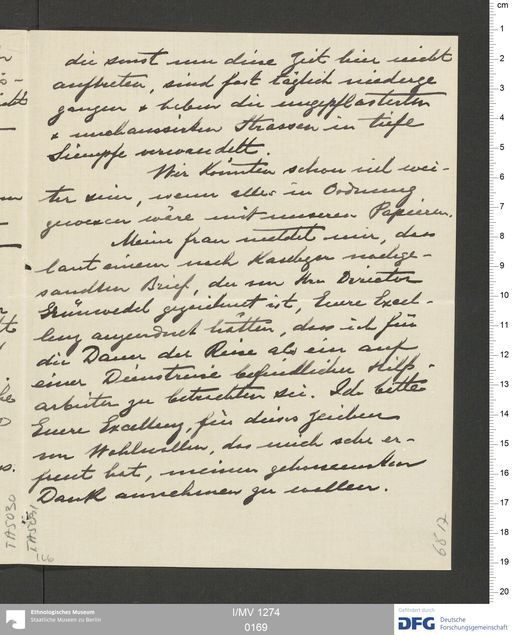 die sonst um diese Zeit hier nicht
auftreten, sind fast täglich niederge
gangen & haben die ungepflasterten
& unchaussirten Strassen in tiefe
Sümpfe verwandelt.
Wir könnten schon viel wei-
ter sein, wenn alles in Ordnung
gewesen wäre mit unseren Papieren.
Meine Frau meldet mir, dass
laut einem nach Kashgar nachge-
sandten Brief, der von Herrn Director
Grünwedel gezeichnet ist, Euere Excel-
lenz angeordnet hätten, dass ich für
die Dauer der Reise als ein auf
einer Dienstreise befindlicher Hilfs-
arbeiter zu betrachten sei. Ich bitte
Euere Excellenz, für dieses Zeichen
von Wohlwollen, das mich sehr er-
freut hat, meinen gehorsamsten
Dank annehmen zu wollen.
TA5030
TA5031
6817
Ethnologisches Museum
Staatliche Museen zu Berlin
I/MV 1274
0169
Gefördert durch
DFG Deutsche
Forschungsgemeinschaft
cm
1
2
3
4
5
6
7
8
9
10
11
12
13
14
15
16
17
18
19
20